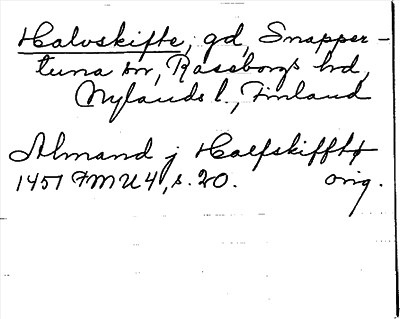 Halvskifte, gd, Snapper-
tuna sn, Raseborgs hd,
Nylands l., Finland
Almand j Halfskiffht
1451 FMU 4, s. 20. orig.